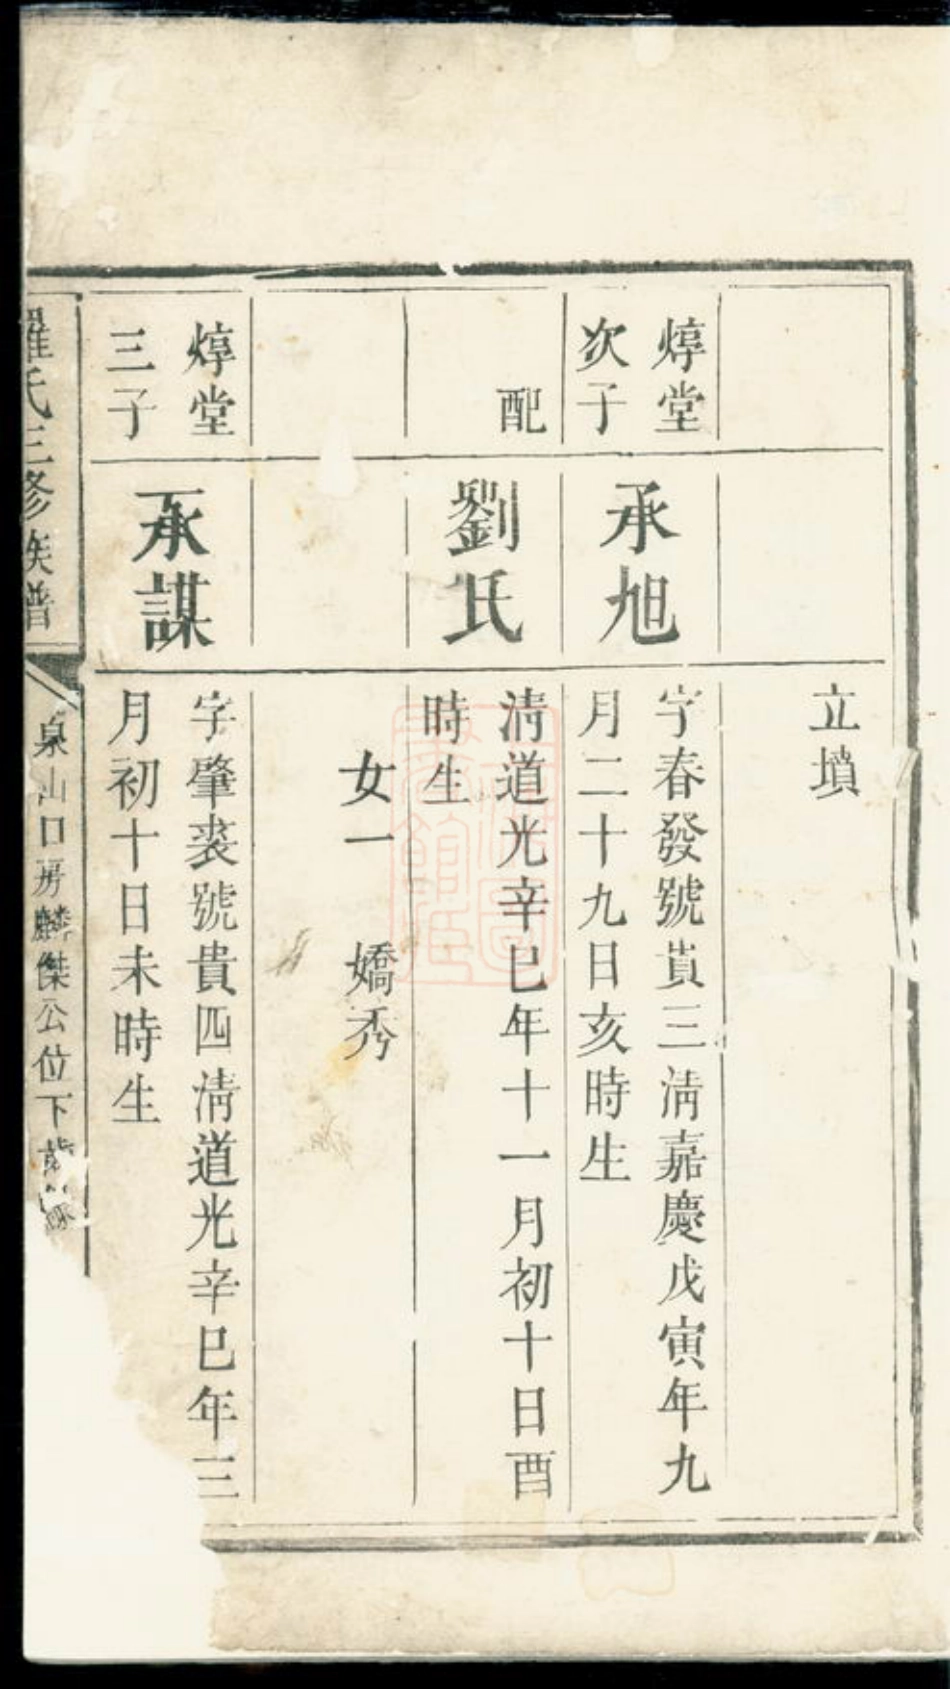 立墳
焞堂
次子
承旭
字春發號貴三淸嘉慶戊寅年九
月二十九日亥時生
配
劉氏
淸道光辛巳年十一月初十日酉
時生
女一 嬌秀
焞堂
三子
承謀
字肇裘號貴四淸道光辛巳年三
月初十日未時生
羅氏三修族譜
泉山口房麟傑公位下